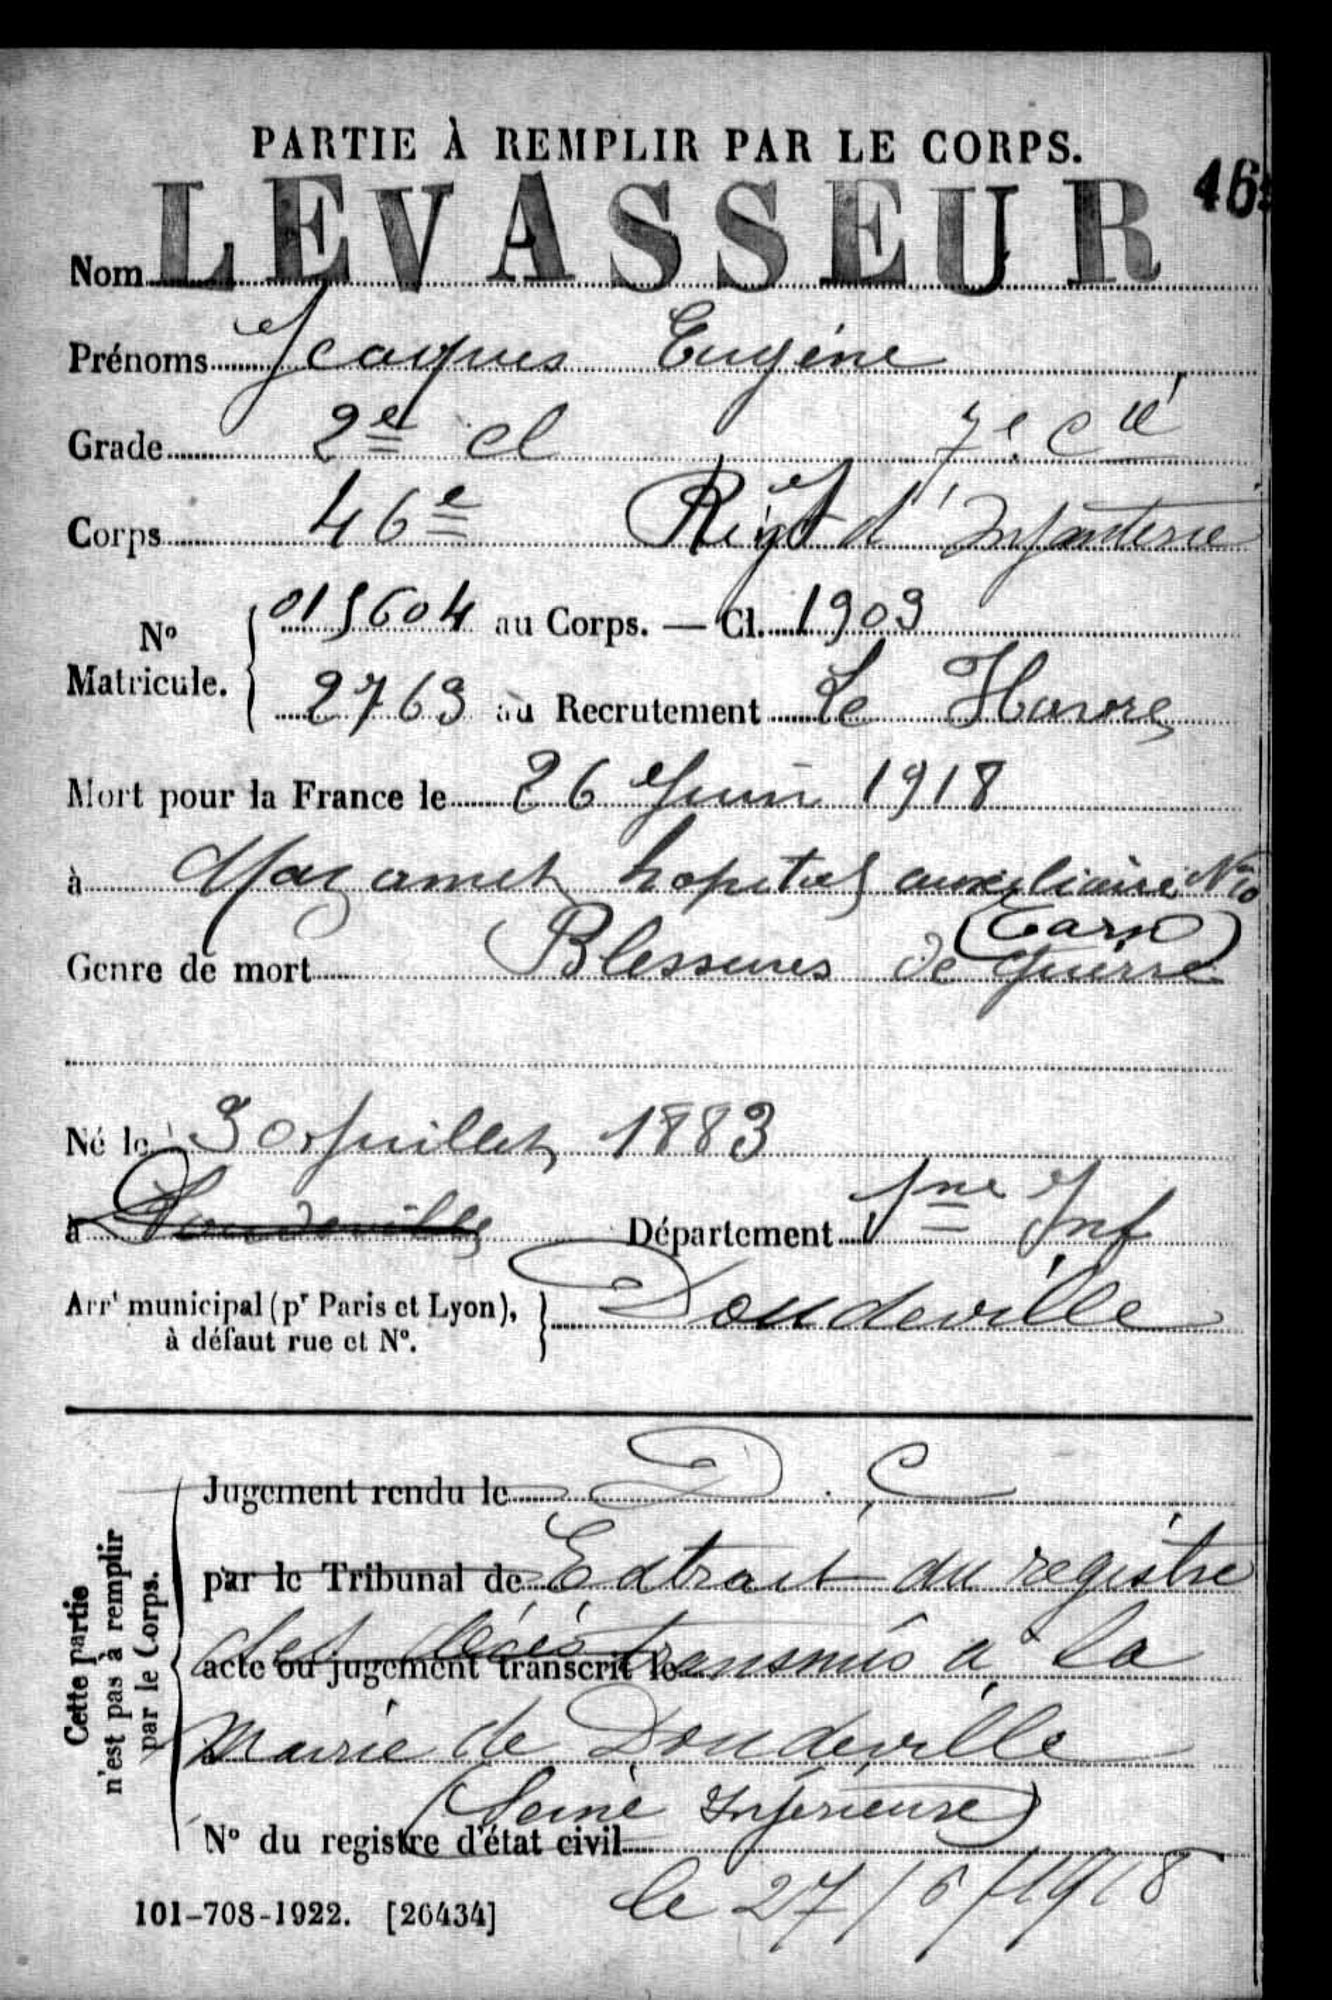 PARTIE À REMPLIR PAR LE CORPS.
46
Nom LEVASSEUR
Prénoms Jacques Eugène
Grade 2e cl 7e Cie
Corps 46e Régt d'Infanterie
No Matricule. 015604 au Corps. — Cl. 1903
2763 au Recrutement Le Havre
Mort pour la France le 26 Juin 1918
à Mazamet hopital auxiliaire No 10
(Tarn)
Genre de mort Blessures de Guerre
Né le 30 Juillet 1883
à Doudeville Département Sne Inf
Arrt municipal (pr Paris et Lyon), à défaut rue et No. Doudeville
Cette partie n'est pas à remplir par le Corps.
Jugement rendu le D. C
par le Tribunal de Extrait du registre
acte ou jugement transcrit le des décès transmis à la
Mairie de Doudeville
(Seine Inférieure)
No du registre d'état civil
le 27/6/1918
101-708-1922. [26434]